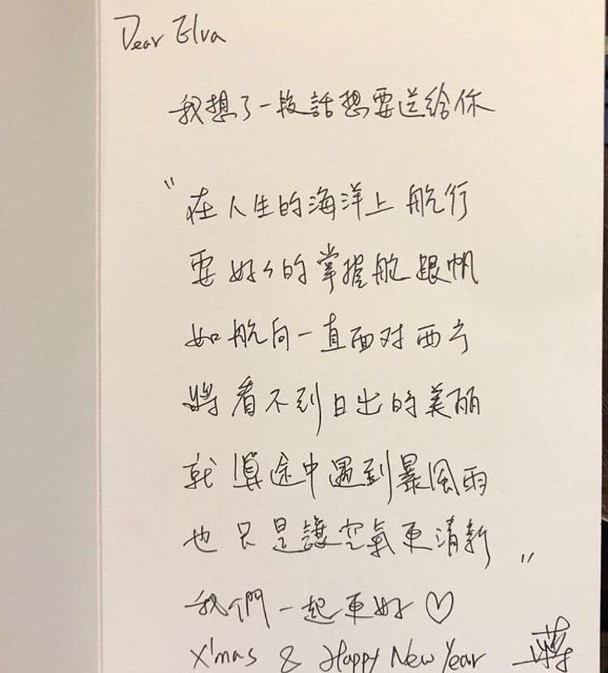 Dear Elva
我想了一段話想要送給你
"在人生的海洋上航行
要好々的掌握舵跟帆
如航向一直面对西方
將看不到日出的美丽
就算途中遇到暴風雨
也只是讓空氣更清新"
我們一起更好♡
X'mas & Happy New Year